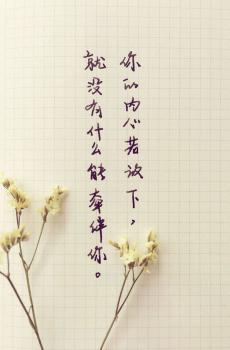 你的内心若放下，
就没有什么能牵伴你。